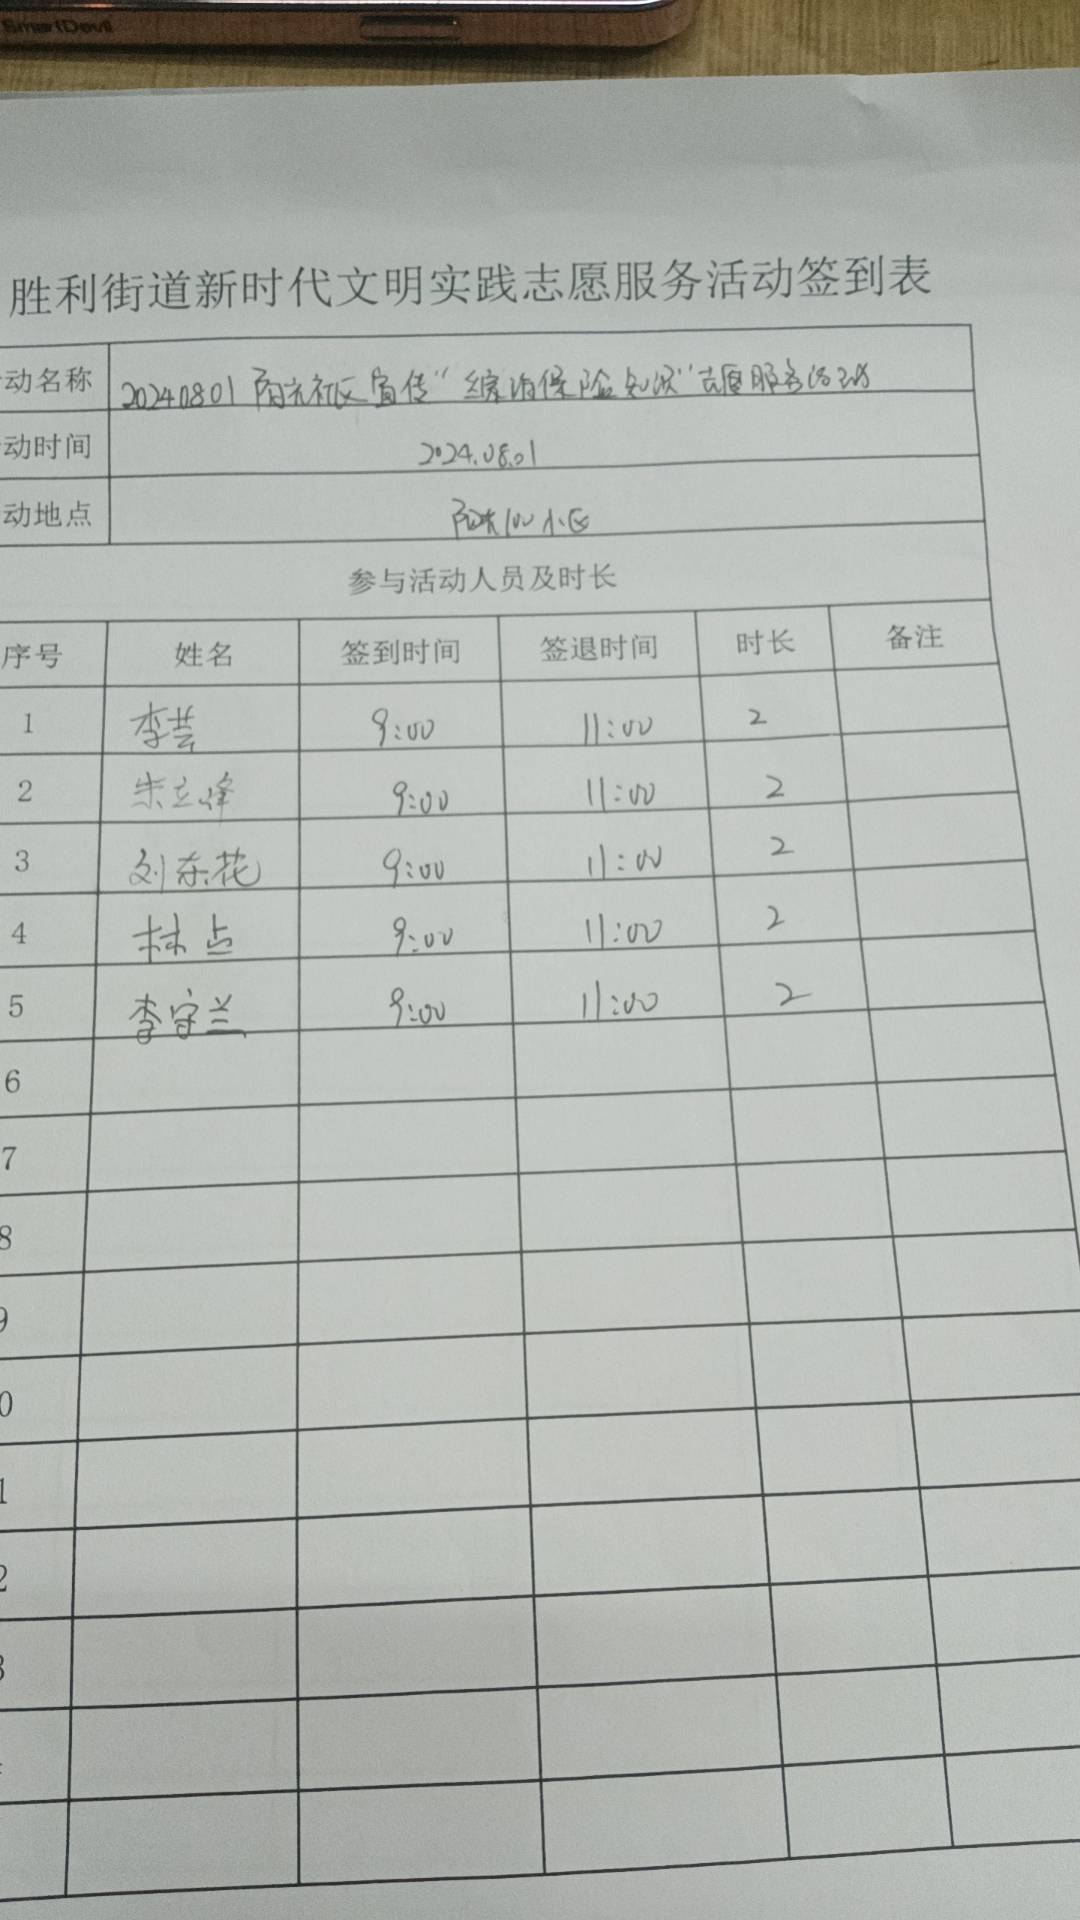 SmartDevil
胜利街道新时代文明实践志愿服务活动签到表
动名称 20240801 阳光社区宣传“缴消保险知识”志愿服务活动
动时间 2024.08.01
动地点 小区
参与活动人员及时长
序号 姓名 签到时间 签退时间 时长 备注
1 李芸 9:00 11:00 2
2 朱立峰 9:00 11:00 2
3 刘东花 9:00 11:00 2
4 林点 9:00 11:00 2
5 李守兰 9:00 11:00 2
6
7
8
9
0
1
2
3